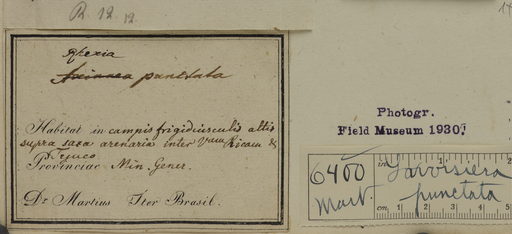 R. 12. 12.
Rhexia
punctata
Habitat in campis frigidiusculis altis
supra saxa arenaria inter Ricam &
Tejuco
Provinciae Min. Gener.
Dr Martius Iter Brasil.
Photogr.
Field Museum 1930.
6400
Mart.
Lavoisiera
punctata
in
cm 1 2 3 4 5